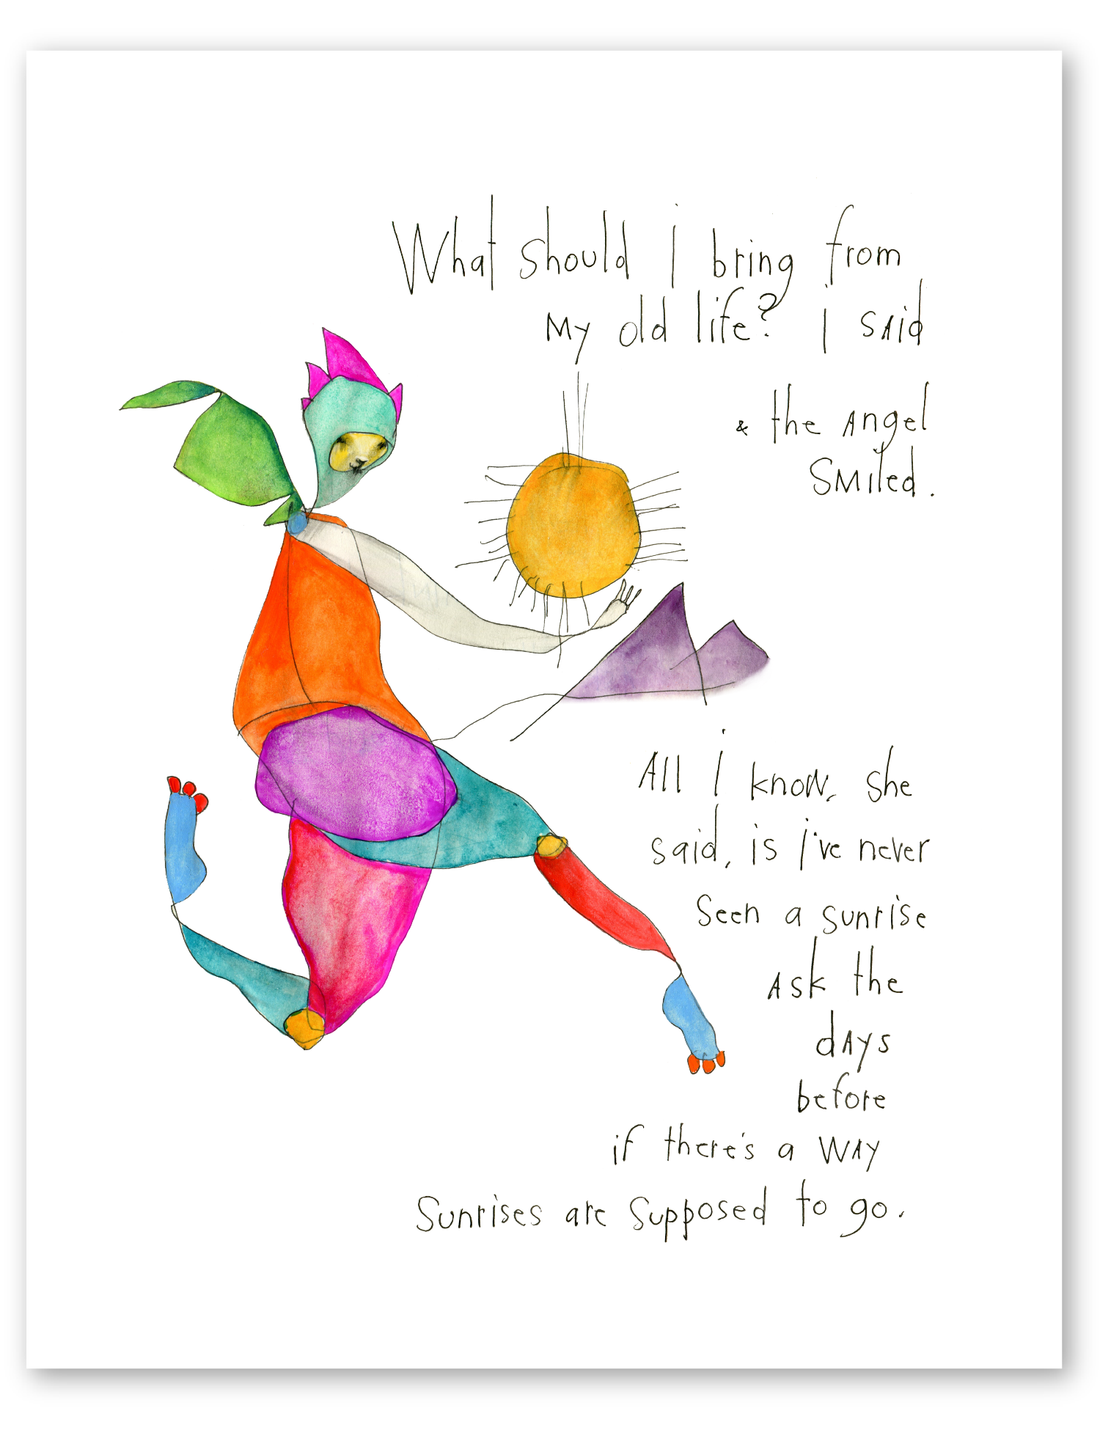 What should i bring from
my old life? i said
& the angel
smiled.
All i know, she
said, is i've never
seen a sunrise
ask the
days
before
if there's a way
sunrises are supposed to go.